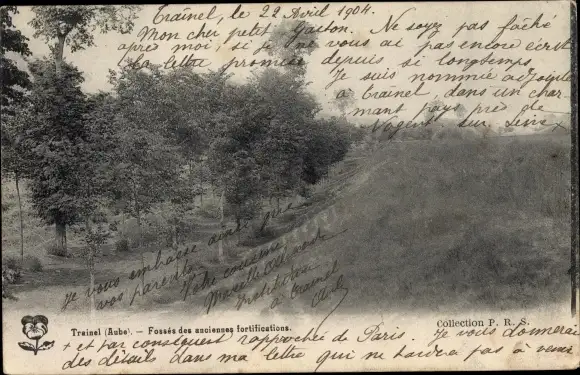 Traînel, le 22 Avril 1904.
Mon cher petit Gaston. Ne soyez pas fâché
après moi, si je ne vous ai pas encore écrit
la lettre promise depuis si longtemps
Je suis nommée adjointe
à Traînel, dans un char-
mant pays près de
Nogent sur Seine x
je vous embrasse ainsi que
vos parents
Votre cousine
Marcelle
Institutrice
à Traînel
Aube
Trainel (Aube). — Fossés des anciennes fortifications.
Collection P. R. S.
x et par conséquent rapprochée de Paris. Je vous donnerai
des détails dans ma lettre qui ne tardera pas à venir